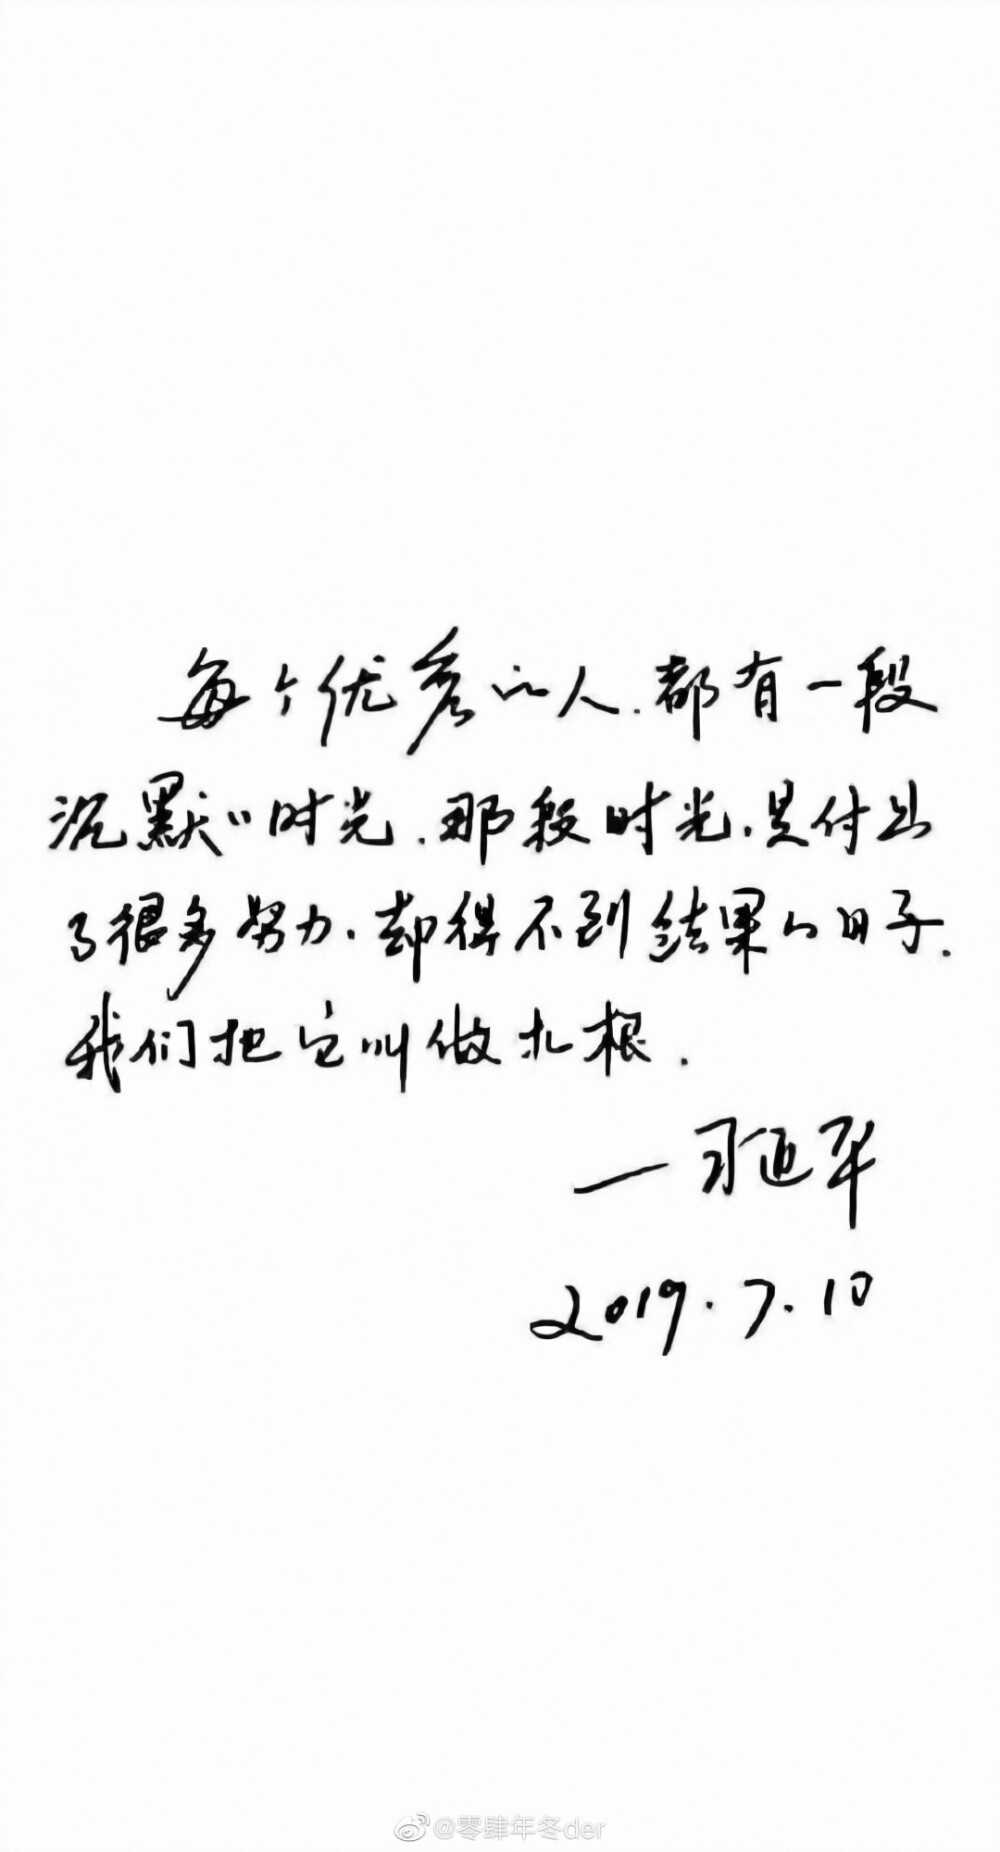 每个优秀的人.都有一段
沉默的时光.那段时光.是付出
了很多努力.却得不到结果的日子.
我们把它叫做扎根.
—习近平
2019.7.10
@零肆年冬der